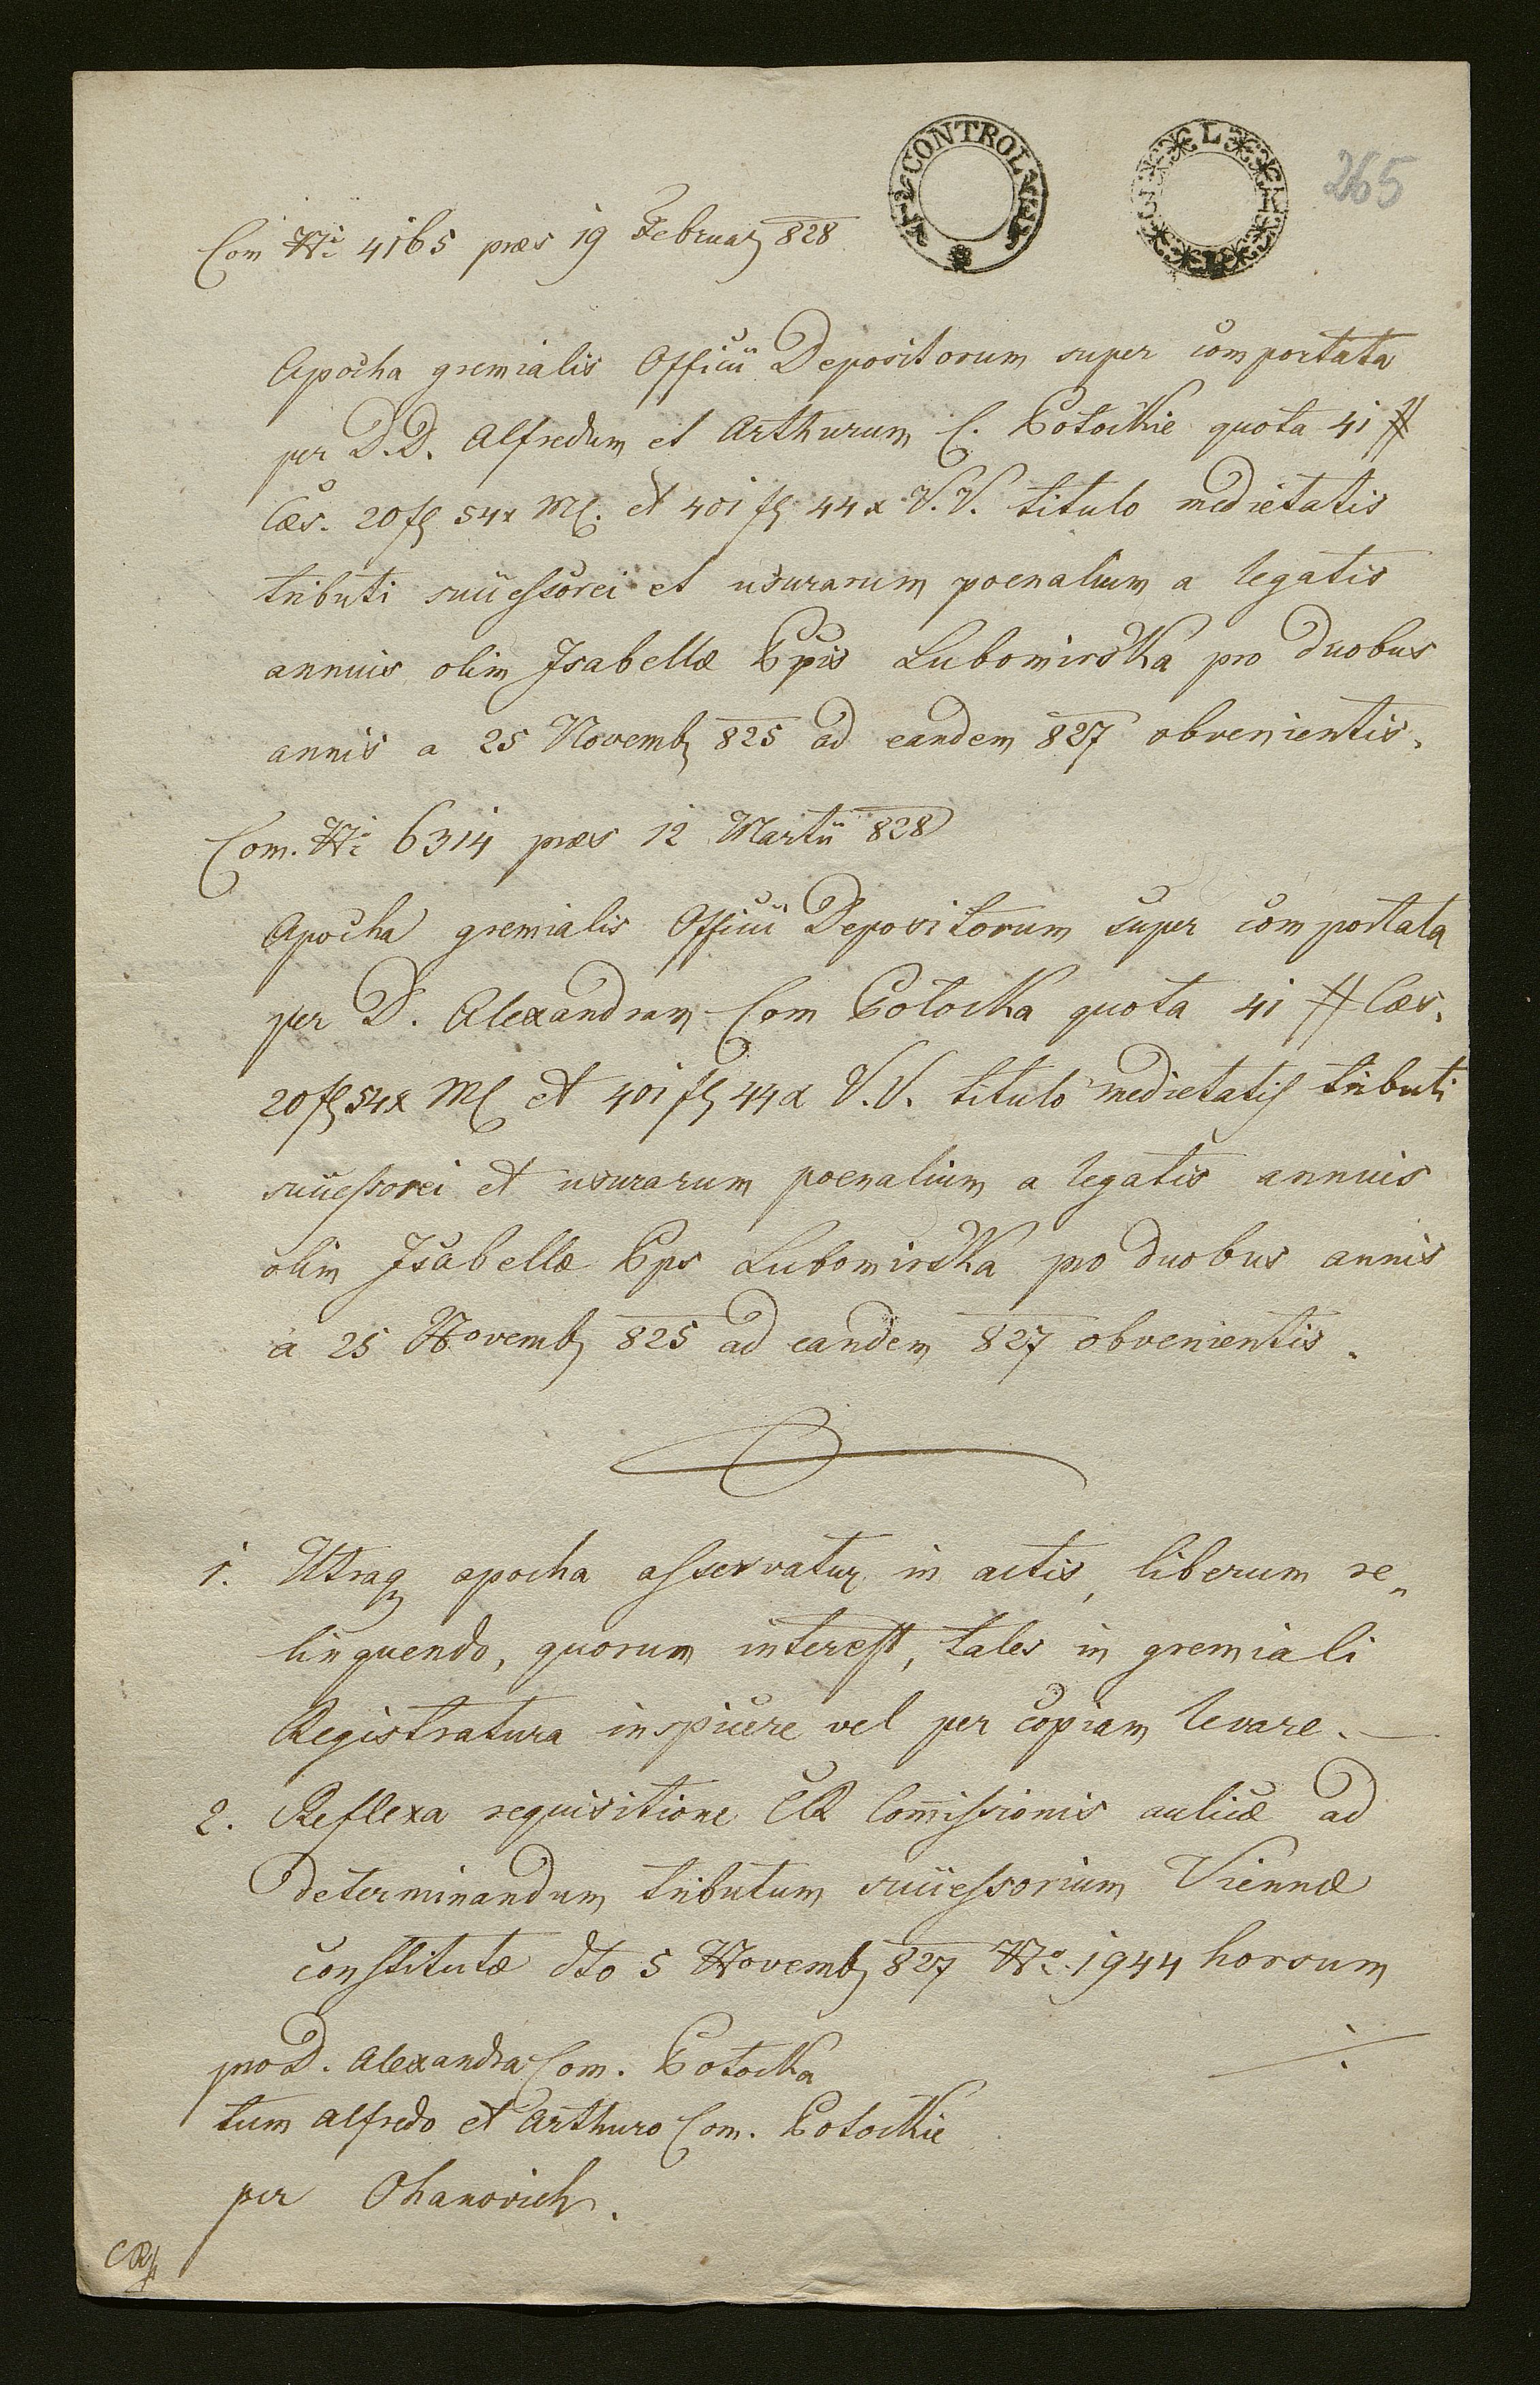 CONTROL
L
265
Com Nri 4165 præs 19 Februar 828
Apocha gremialis Officii Depositorum super comportata
per D.D. Alfredum et Arthurum C. Potockie quota 41 #
Cæs. 20 fl 54 x MC. et 401 fl 44 x V.V. titulo medietatis
tributi successorei et usurarum poenalium a legatis
annuis olim Isabellæ Ppis Lubomirska pro duobus
annis a 25 Novemb 825 ad eandem 827 obvenientis.
Com. Nri 6314 præs 12 Martii 828
Apocha gremialis Officii Depositorum super comportata
per D. Alexandram Com Potocka quota 41 # Cæs.
20 fl 54 x MC et 401 fl 44 x V.V. titulo medietatis tributi
successorei et usurarum poenalium a legatis annuis
olim Isabellæ Pps Lubomirska pro duobus annis
a 25 Novemb 825 ad eandem 827 obvenientis.
1. Utraq apocha asservatur in actis, liberum re„
linquendo, quorum interest, tales in gremiali
Registratura inspicere vel per copiam levare. —
2. Reflexa requisitione CR Comissionis aulicæ ad
determinandum tributum successorium Viennæ
constitutæ dto 5 Novemb 827 No. 1944 horsum
pro D. Alexandra Com. Potocka
tum Alfredo et Arthuro Com. Potockie
per Ohanovich.